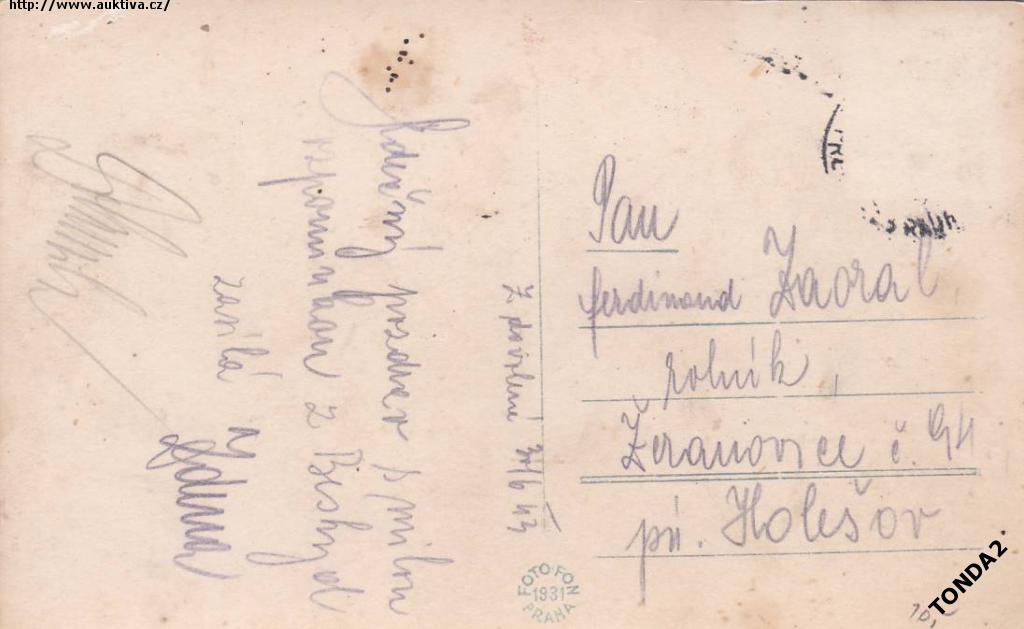 http://www.auktiva.cz/
Srdečný pozdrav s milou
vzpomínkou z Beskyd
zasílá
Z dovolené 30/6 43
Pan
Ferdinand Zaoral,
rolník,
Žeranovice č. 94
pú. Holešov
FOTO-FON
1931
PRAHA
TONDA2